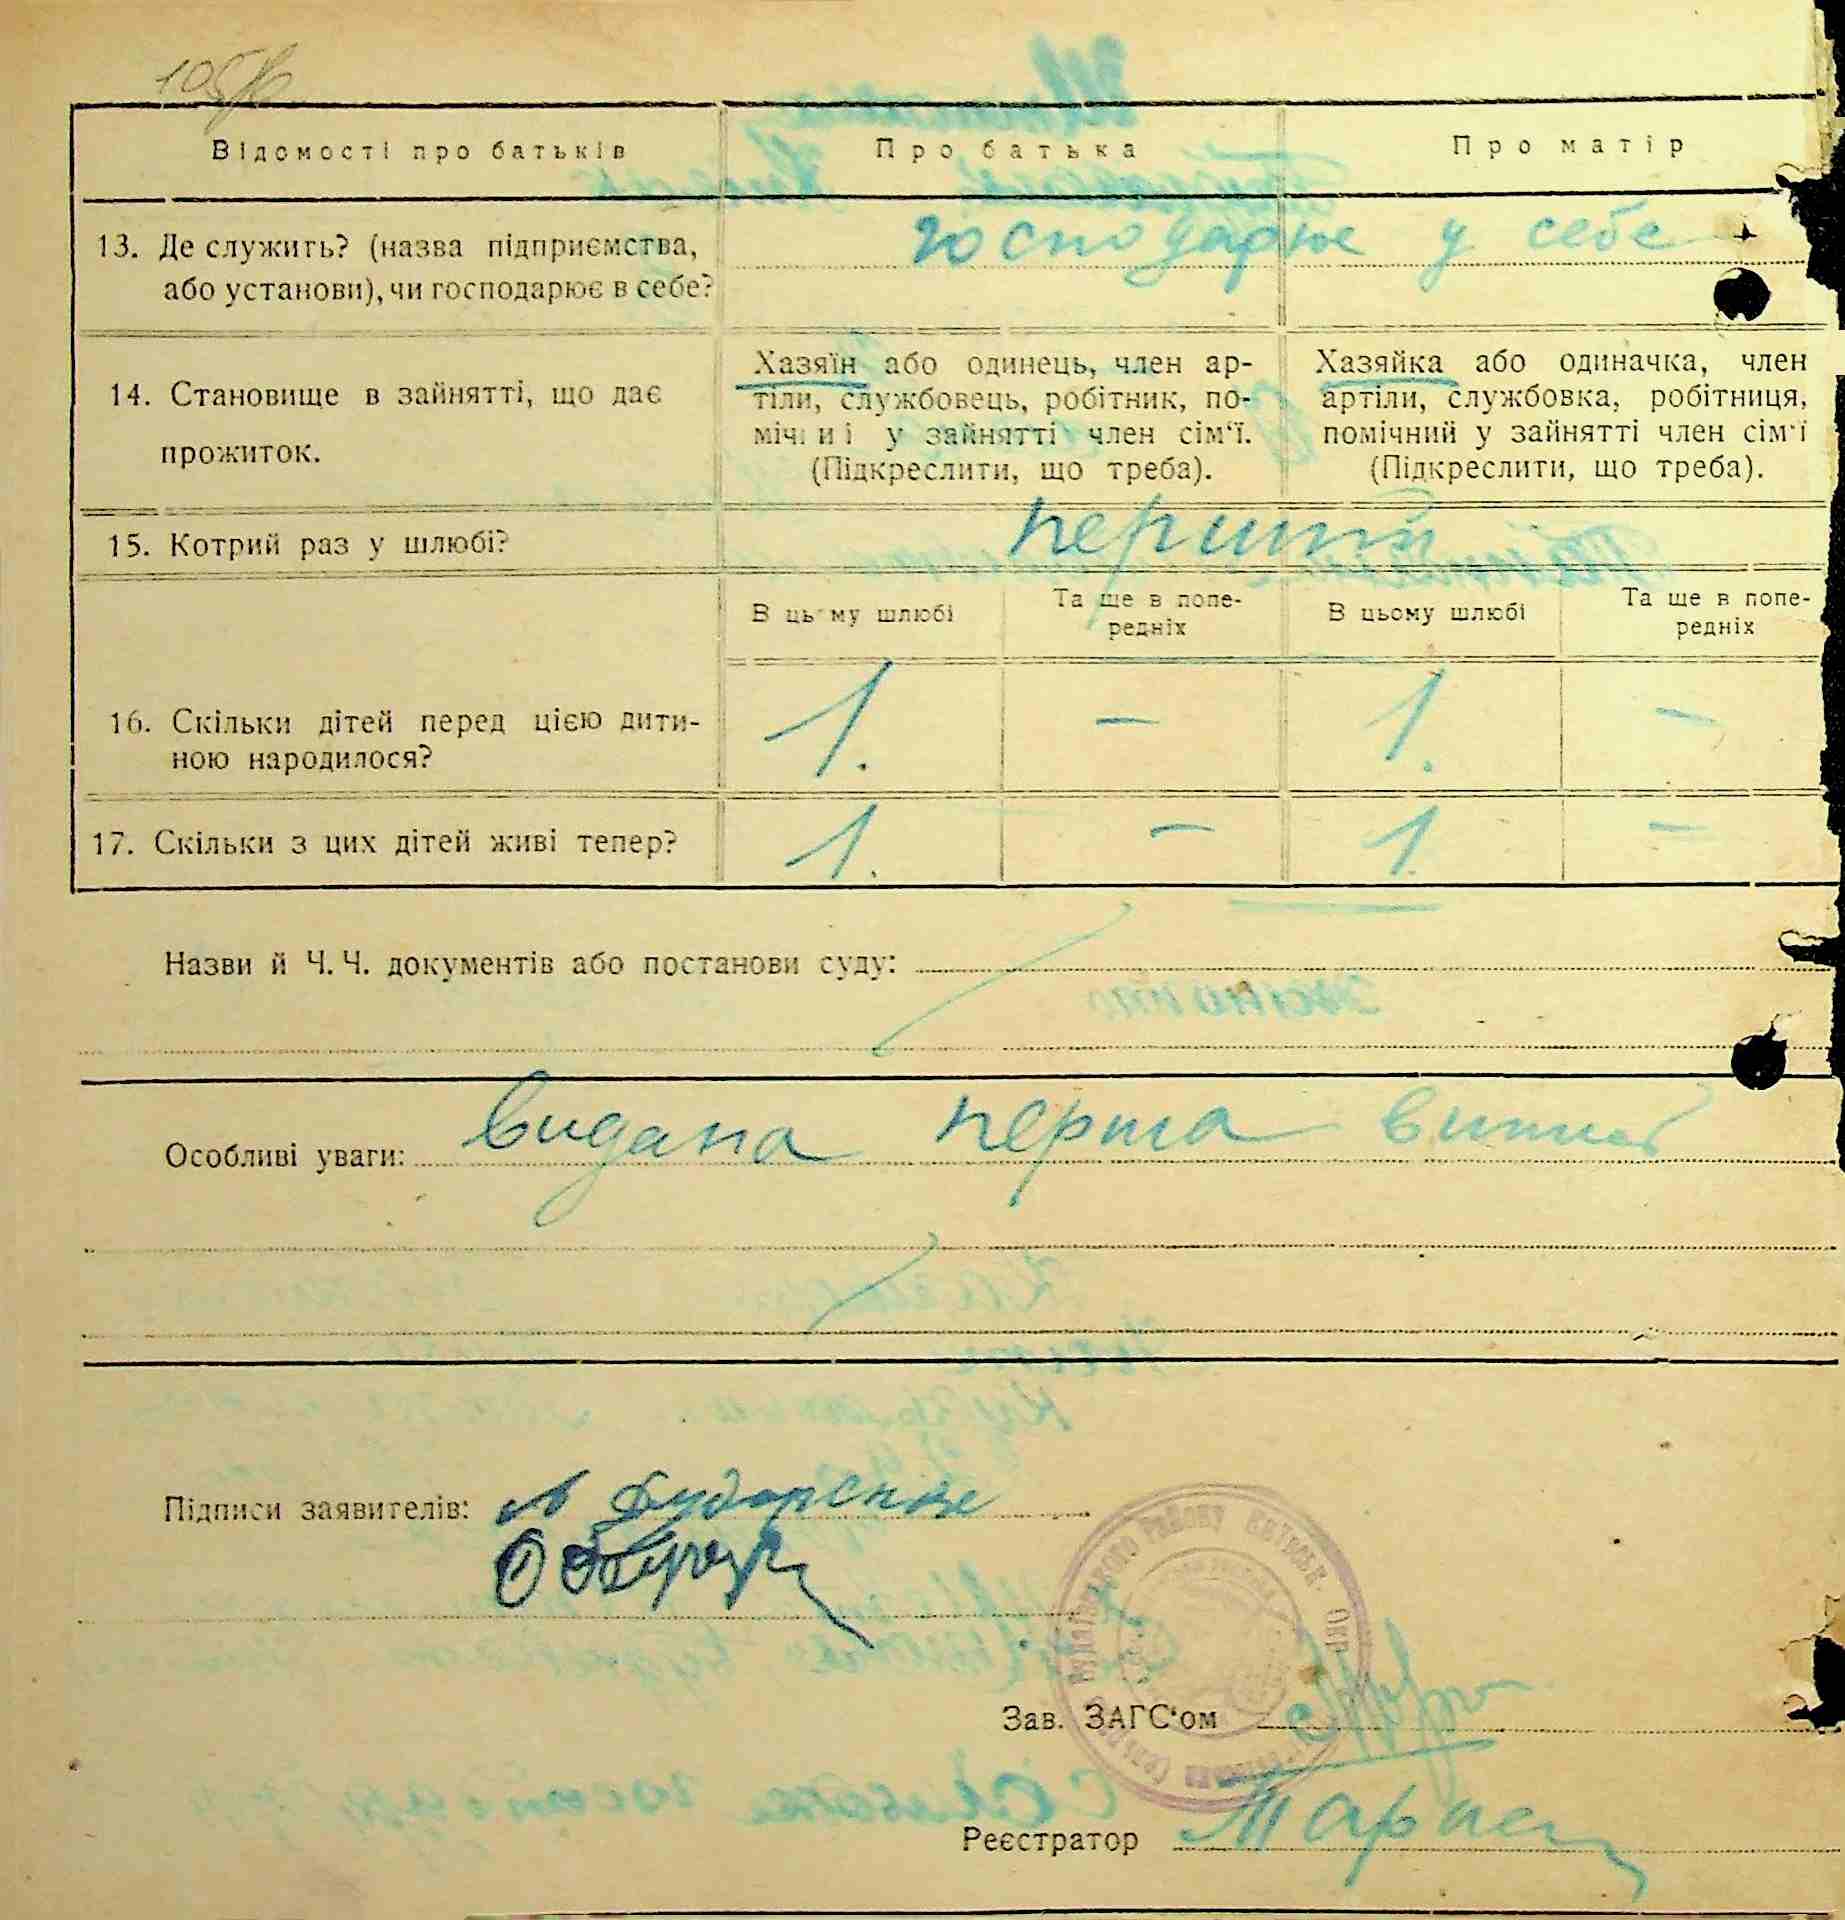 Відомості про батьків Про батька Про матір
13. Де служить? (назва підприємства, або установи), чи господарює в себе?
господарює у себе
14. Становище в зайнятті, що дає прожиток.
Хазяїн або одинець, член ар-
тіли, службовець, робітник, по-
міч и і у зайнятті член сім'ї.
(Підкреслити, що треба).
Хазяйка або одиначка, член
артіли, службовка, робітниця,
помічний у зайнятті член сім'ї
(Підкреслити, що треба).
15. Котрий раз у шлюбі? перший
В цьму шлюбі
Та ще в попе-
редніх
В цьому шлюбі
Та ще в попе-
редніх
16. Скільки дітей перед цією дити-
ною народилося?
1. — 1. —
17. Скільки з цих дітей живі тепер? 1. — 1. —
Назви й Ч. Ч. документів або постанови суду:
Особливі уваги: видана перша
Підписи заявителів:
Зав. ЗАГС'ом
Реєстратор